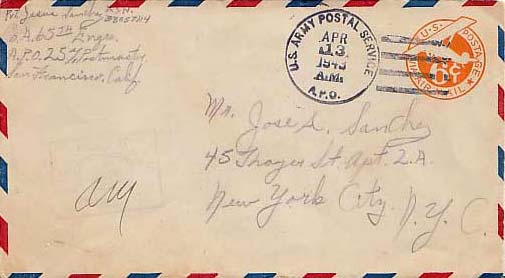 Pvt. Jesus Sanchez A.S.N.
65th Engrs.
A.P.O. 25 % Postmaster
San Francisco, Calif
U.S. ARMY POSTAL SERVICE
APR
13
1943
A.M.
A.P.O.
U.S. POSTAGE
6¢
VIA AIR MAIL
Mr. José S. Sanchez
45 Thayer St. Apt. 2.A.
New York City. N.Y.C.